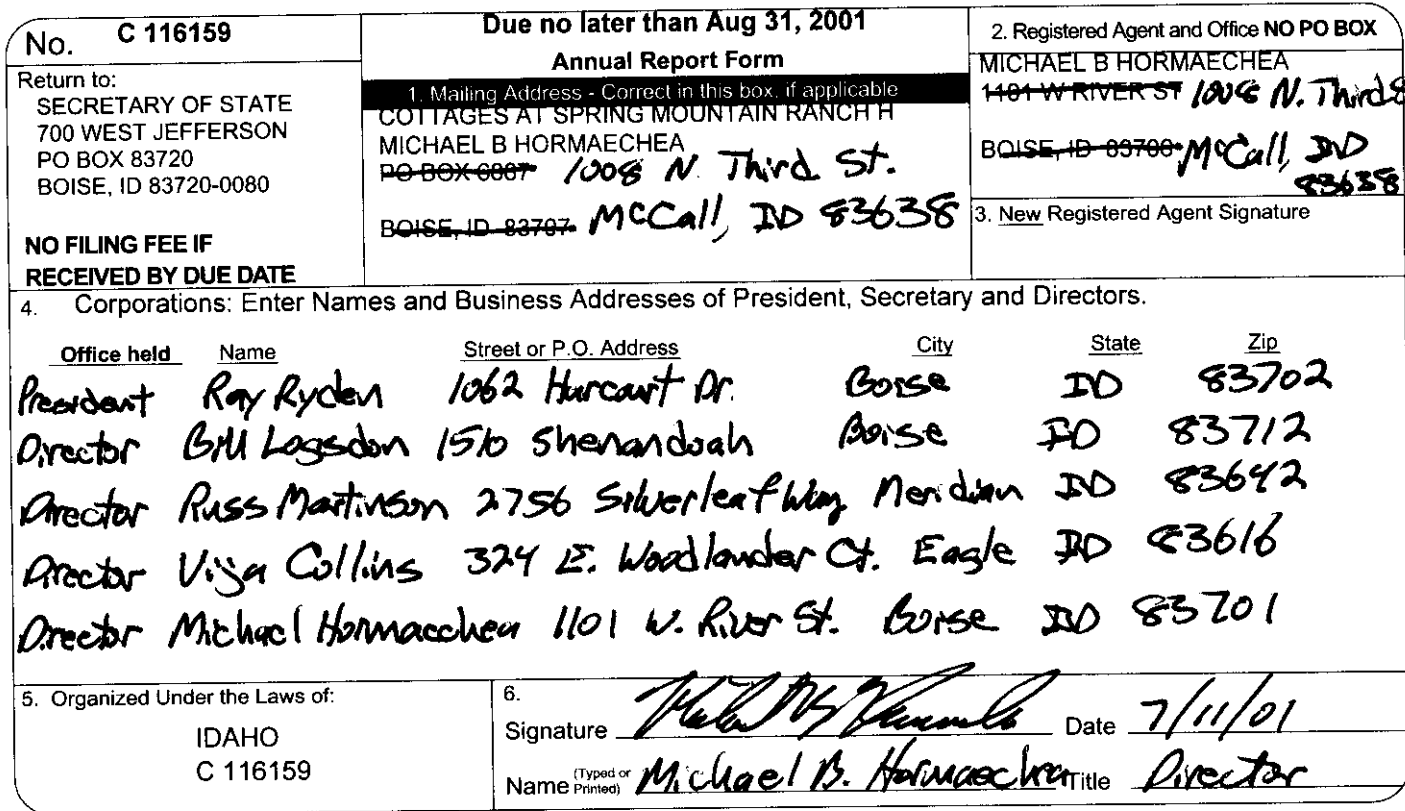 No. C 116159
Due no later than Aug 31, 2001
Annual Report Form
Return to:
SECRETARY OF STATE
700 WEST JEFFERSON
PO BOX 83720
BOISE, ID 83720-0080
NO FILING FEE IF
RECEIVED BY DUE DATE
1. Mailing Address - Correct in this box, if applicable
COTTAGES AT SPRING MOUNTAIN RANCH H
MICHAEL B HORMAECHEA
PO BOX 6887 1008 N. Third St.
BOISE, ID 83707 McCall, ID 83638
2. Registered Agent and Office NO PO BOX
MICHAEL B HORMAECHEA
1101 W RIVER ST 1008 N. Third S
BOISE, ID 83700 McCall, ID
83638
3. New Registered Agent Signature
4. Corporations: Enter Names and Business Addresses of President, Secretary and Directors.
Office held Name Street or P.O. Address City State Zip
President Ray Ryden 1062 Harcourt Dr. Boise ID 83702
Director Bill Logsdon 1510 Shenandoah Boise ID 83712
Director Russ Martinson 2756 Silverleaf Way Meridian ID 83642
Director Vija Collins 324 E. Woodlander Ct. Eagle ID 83616
Director Michael Hormaechea 1101 W. River St. Boise ID 83701
5. Organized Under the Laws of:
IDAHO
C 116159
6.
Signature Date 7/11/01
Name (Typed or Printed) Michael B. Hormaechea Title Director